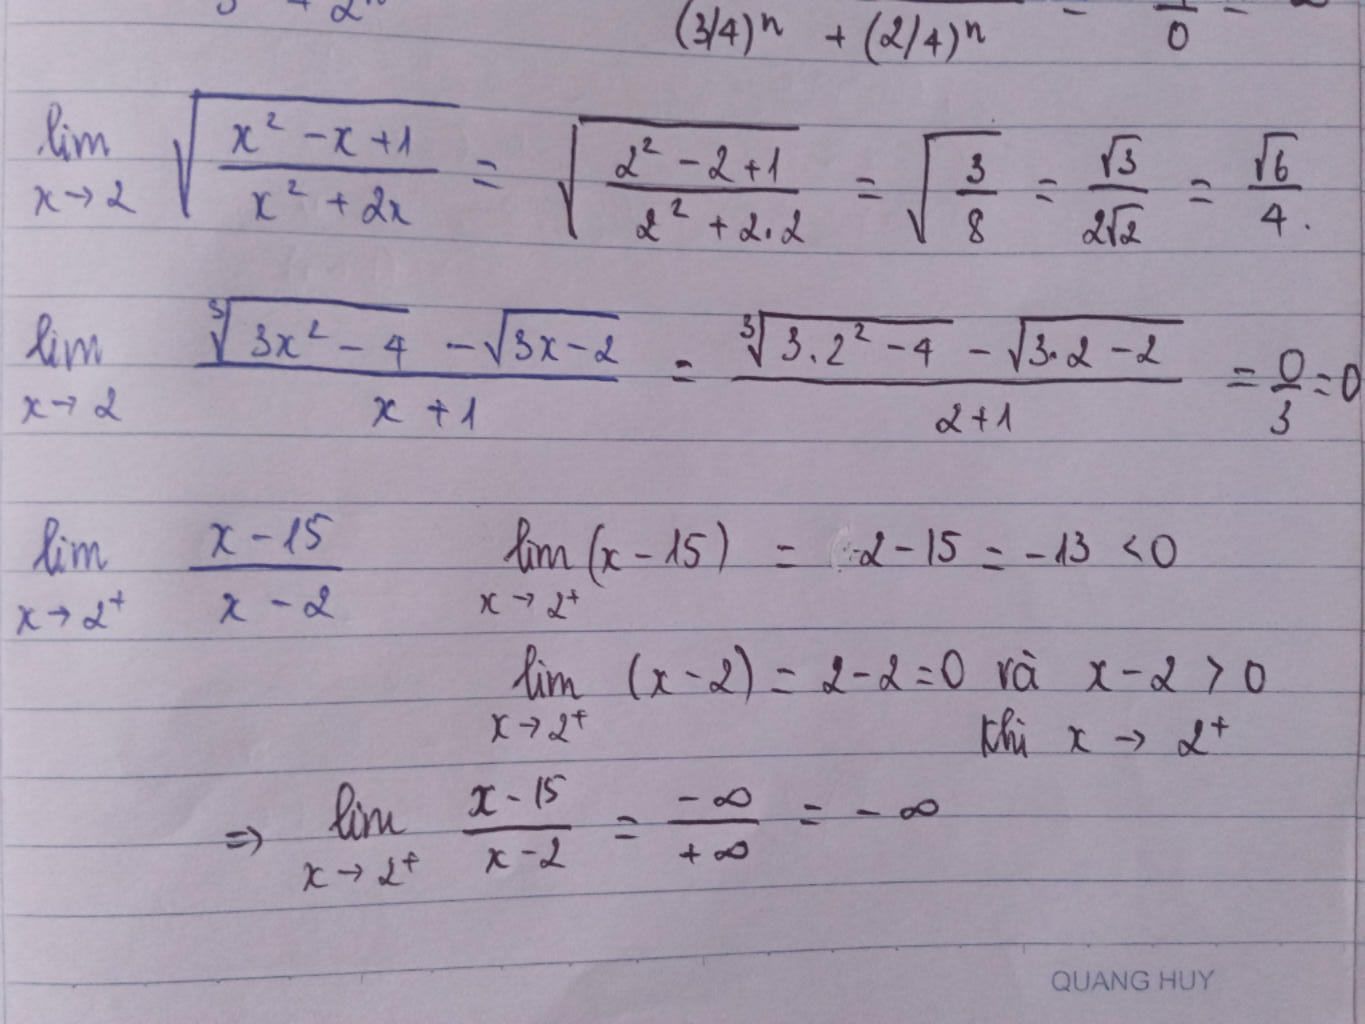 (3/4)ⁿ + (2/4)ⁿ 0
lim x→2 √((x² - x + 1)/(x² + 2x)) = √((2² - 2 + 1)/(2² + 2.2)) = √(3/8) = √3/(2√2) = √6/4.
lim x→2 (∛(3x² - 4) - √(3x - 2))/(x + 1) = (∛(3.2² - 4) - √(3.2 - 2))/(2+1) = 0/3 = 0
lim x→2⁺ (x - 15)/(x - 2) lim x→2⁺ (x - 15) = 2 - 15 = -13 < 0
lim x→2⁺ (x - 2) = 2 - 2 = 0 và x - 2 > 0
khi x → 2⁺
⇒ lim x→2⁺ (x - 15)/(x - 2) = -∞/+∞ = -∞
QUANG HUY